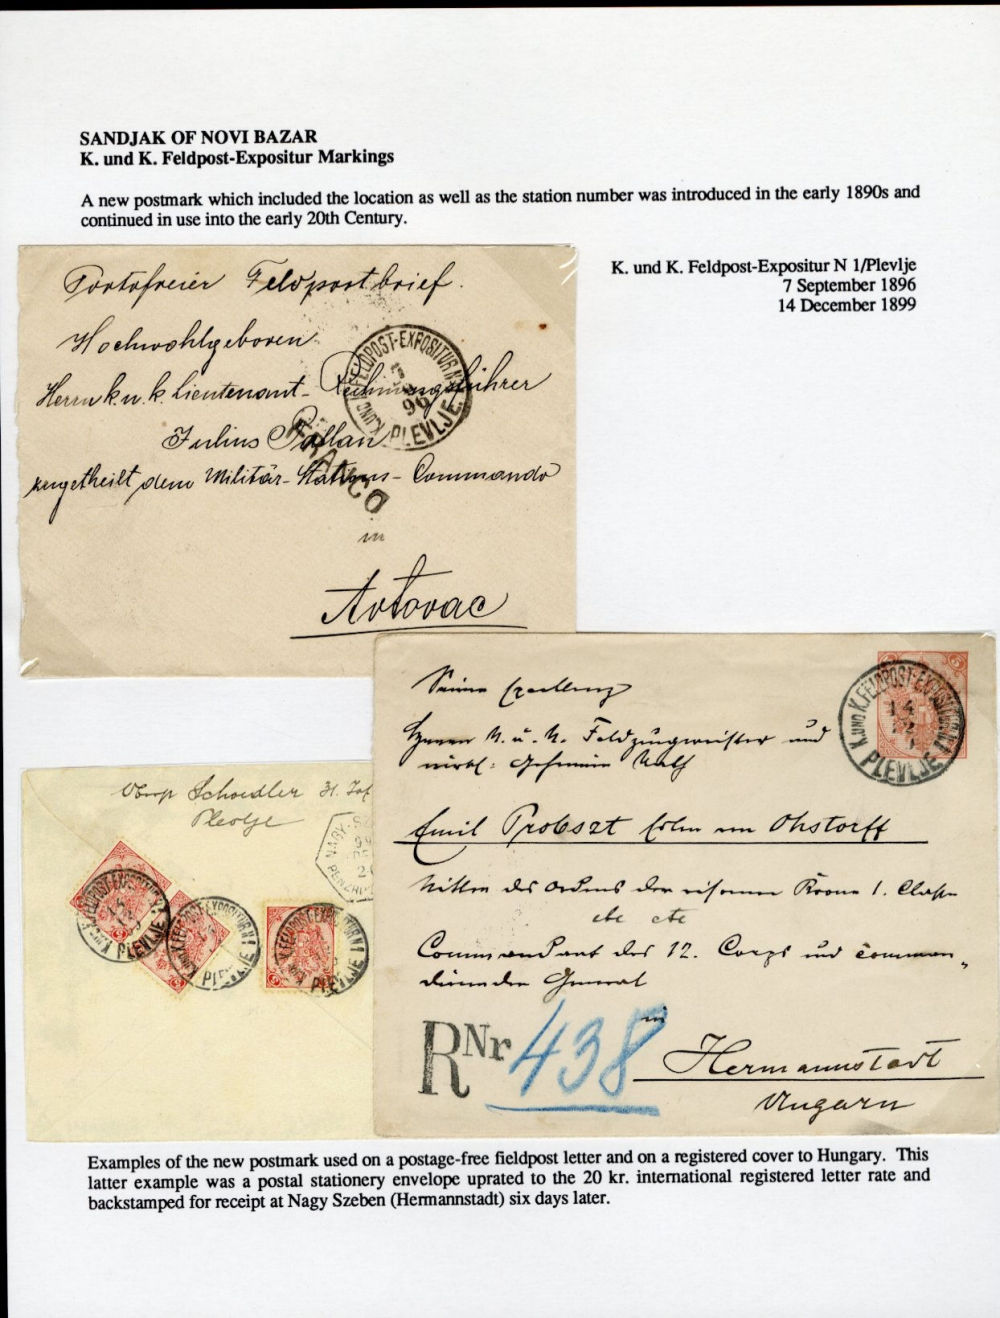 SANDJAK OF NOVI BAZAR
K. und K. Feldpost-Expositur Markings
A new postmark which included the location as well as the station number was introduced in the early 1890s and
continued in use into the early 20th Century.
K. und K. Feldpost-Expositur N 1/Plevlje
7 September 1896
14 December 1899
Portofreier Feldpostbrief.
Hochwohlgeboren
Herrn k. u. k. Lieutenant-Rechnungsführer
Julius
zugetheilt dem Militär-Stations-Commando
in
Avtovac
K. UND K. FELDPOST-EXPOSITUR N 1
96
PLEVLJE
FRANCO
Seine Excellenz
Herrn K. u. K. Feldzeugmeister und
wirkl: Geheimen
Emil Probszt Edlen von Ohstorff
Ritter des Ordens der eisernen Krone 1. Classe
etc etc
Commandant des 12. Corps und comman-
dirender General
in
Hermannstadt
Ungarn
K. UND K. FELDPOST-EXPOSITUR N 1
14
PLEVLJE
RNr 438
Schoedler 31.
Plevlje
NAGY-SZ
K. UND K. FELDPOST-EXPOSITUR N 1
PLEVLJE
K. UND K. FELDPOST-EXPOSITUR N 1
K. UND K. FELDPOST-EXPOSITUR N 1
PLEVLJE
Examples of the new postmark used on a postage-free fieldpost letter and on a registered cover to Hungary. This
latter example was a postal stationery envelope uprated to the 20 kr. international registered letter rate and
backstamped for receipt at Nagy Szeben (Hermannstadt) six days later.